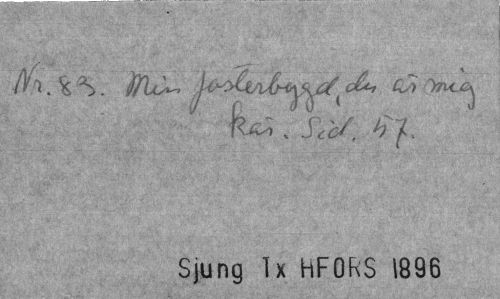 Nr. 83. Min fosterbygd, du är mig
kär. Sid. 57.
Sjung Tx HFORS 1896